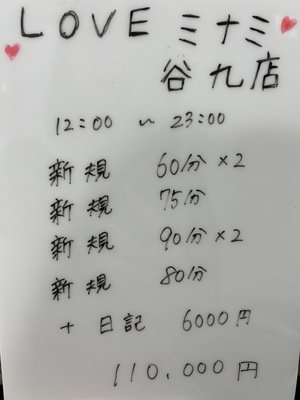 LOVE ミナミ
谷九店
12:00 〜 23:00
新規 60分×2
新規 75分
新規 90分×2
新規 80分
+ 日記 6000円
110,000円